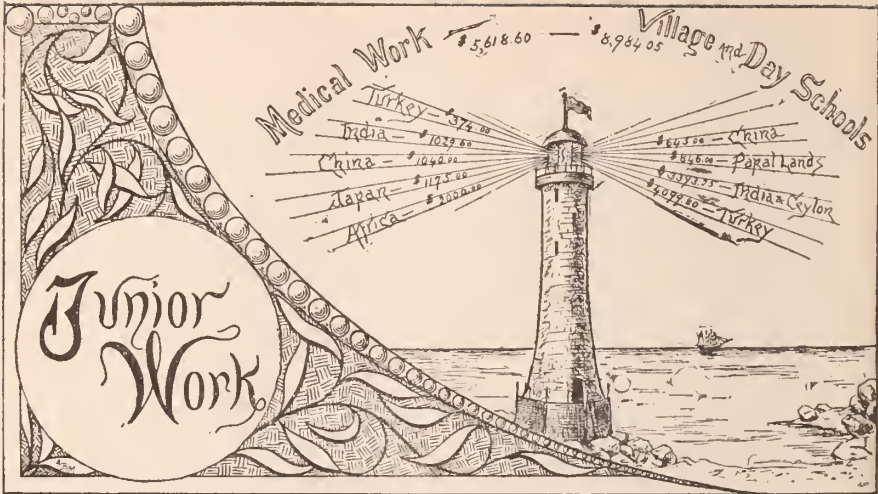 Medical Work $5,618.60 — $8,984.05 Village and Day Schools
Turkey — $374.00
India — $1029.60
China — $1040.00
Japan — $1175.00
Africa — $2000.00
$645.00 — China
$846.00 — Papal Lands
$3393.75 — India & Ceylon
$4099.80 — Turkey
Junior
Work